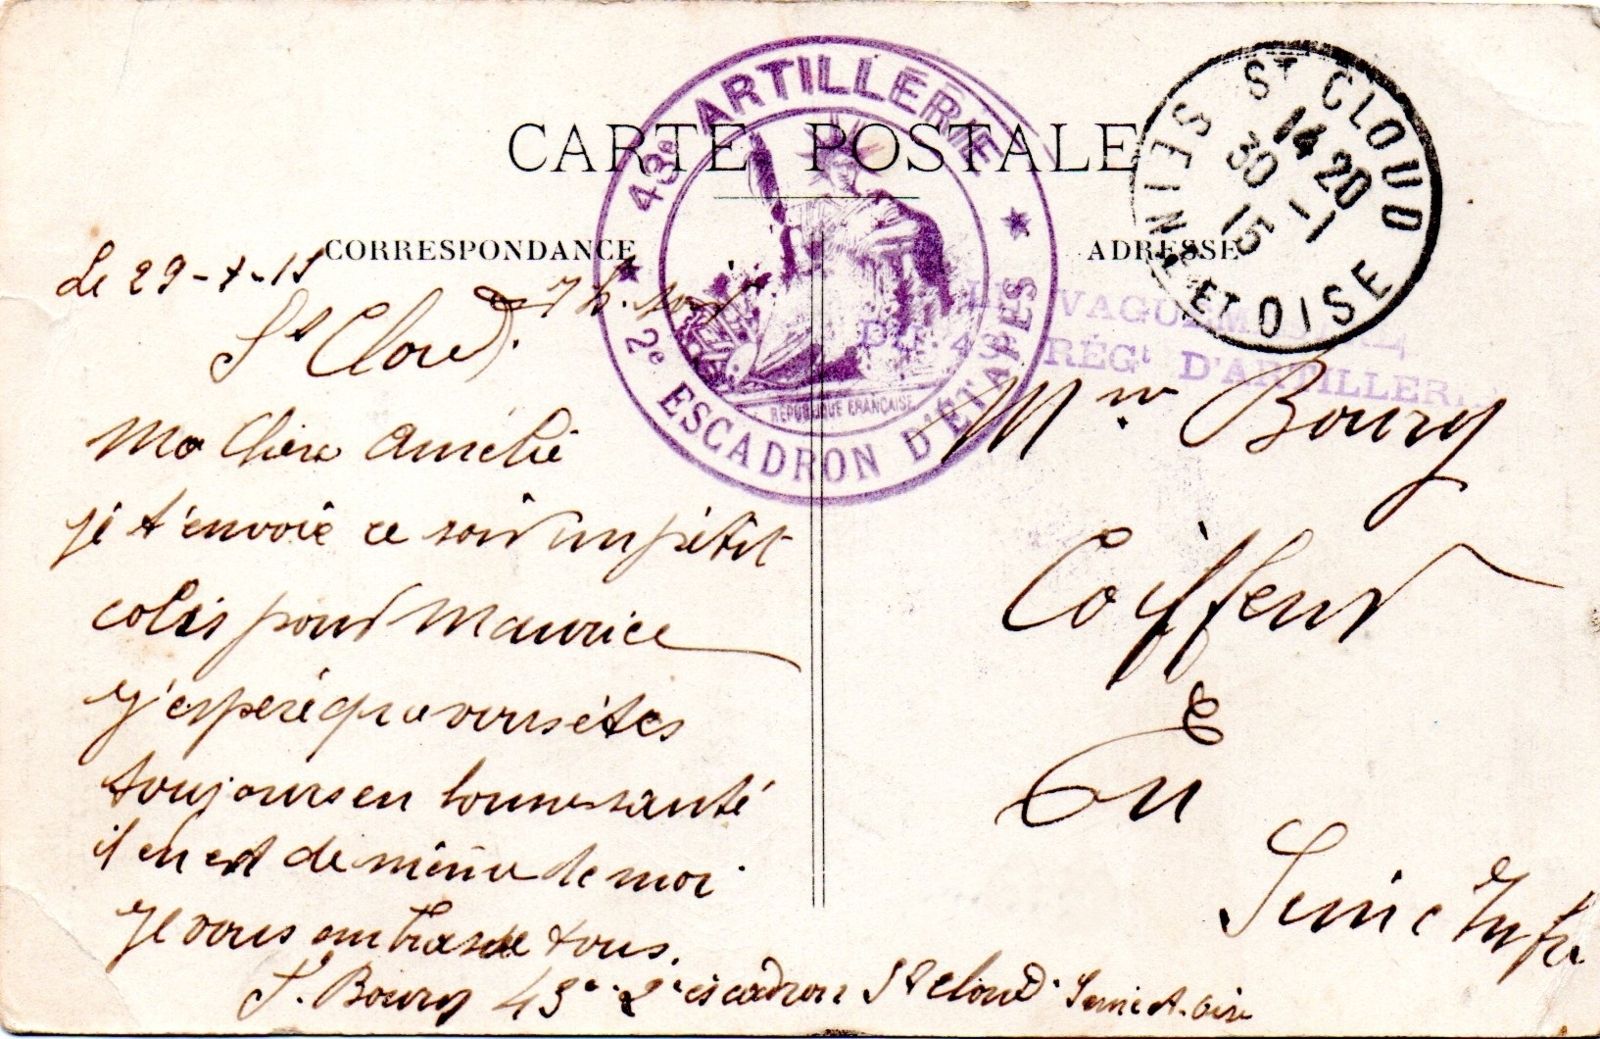 CARTE POSTALE
CORRESPONDANCE
ADRESSE
43e ARTILLERIE
2e ESCADRON D'ÉTAPES
RÉPUBLIQUE FRANÇAISE
ST CLOUD
SEINE ET OISE
14 20
30 -1
15
LE VAGUEMESTRE
DU 43e RÉGt D'ARTILLERIE
Le 29-1-15
7h. soir
St Cloud.
Ma Chère Amélie
je t'envoie ce soir un petit
colis pour Maurice
J'espère que vous êtes
toujours en bonne santé
il en est de même de moi
Je vous embrasse tous.
F. Boury 43e 2e escadron St Cloud Seine et Oise
Boury
Coiffeur
Eu
Seine Infre